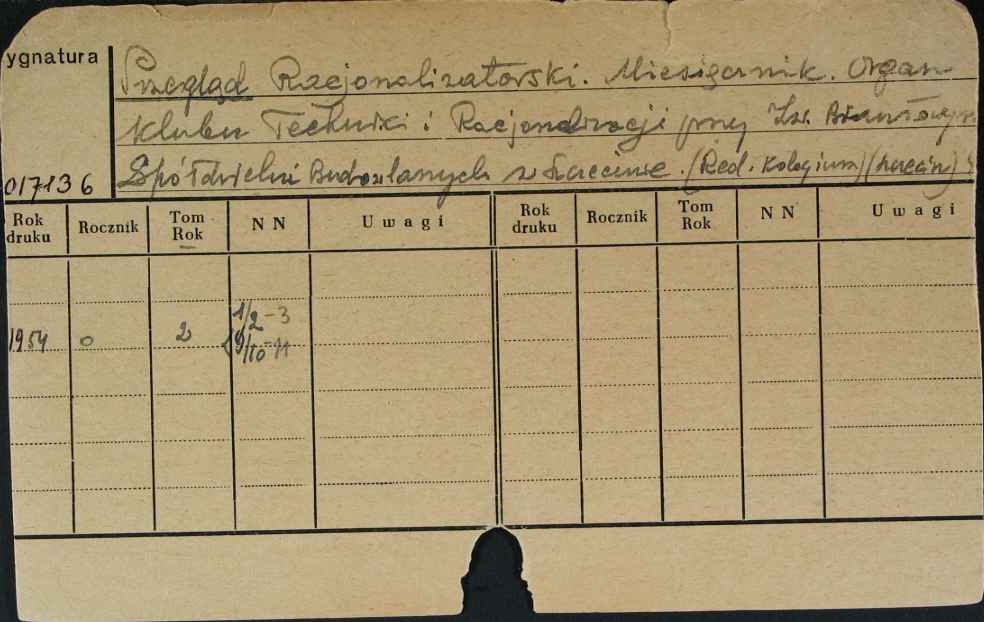 ygnatura
Przegląd Racjonalizatorski. Miesięcznik. Organ
Klubu Techniki i Racjonalizacji przy Zw. Branżowym
Spółdzielni Budowlanych w Szczecinie. (Red. Kolegium) (Szczecin)
017136
Rok druku Rocznik Tom Rok N N Uwagi Rok druku Rocznik Tom Rok N N Uwagi
1/2-3
1954 0 2
9/10-11